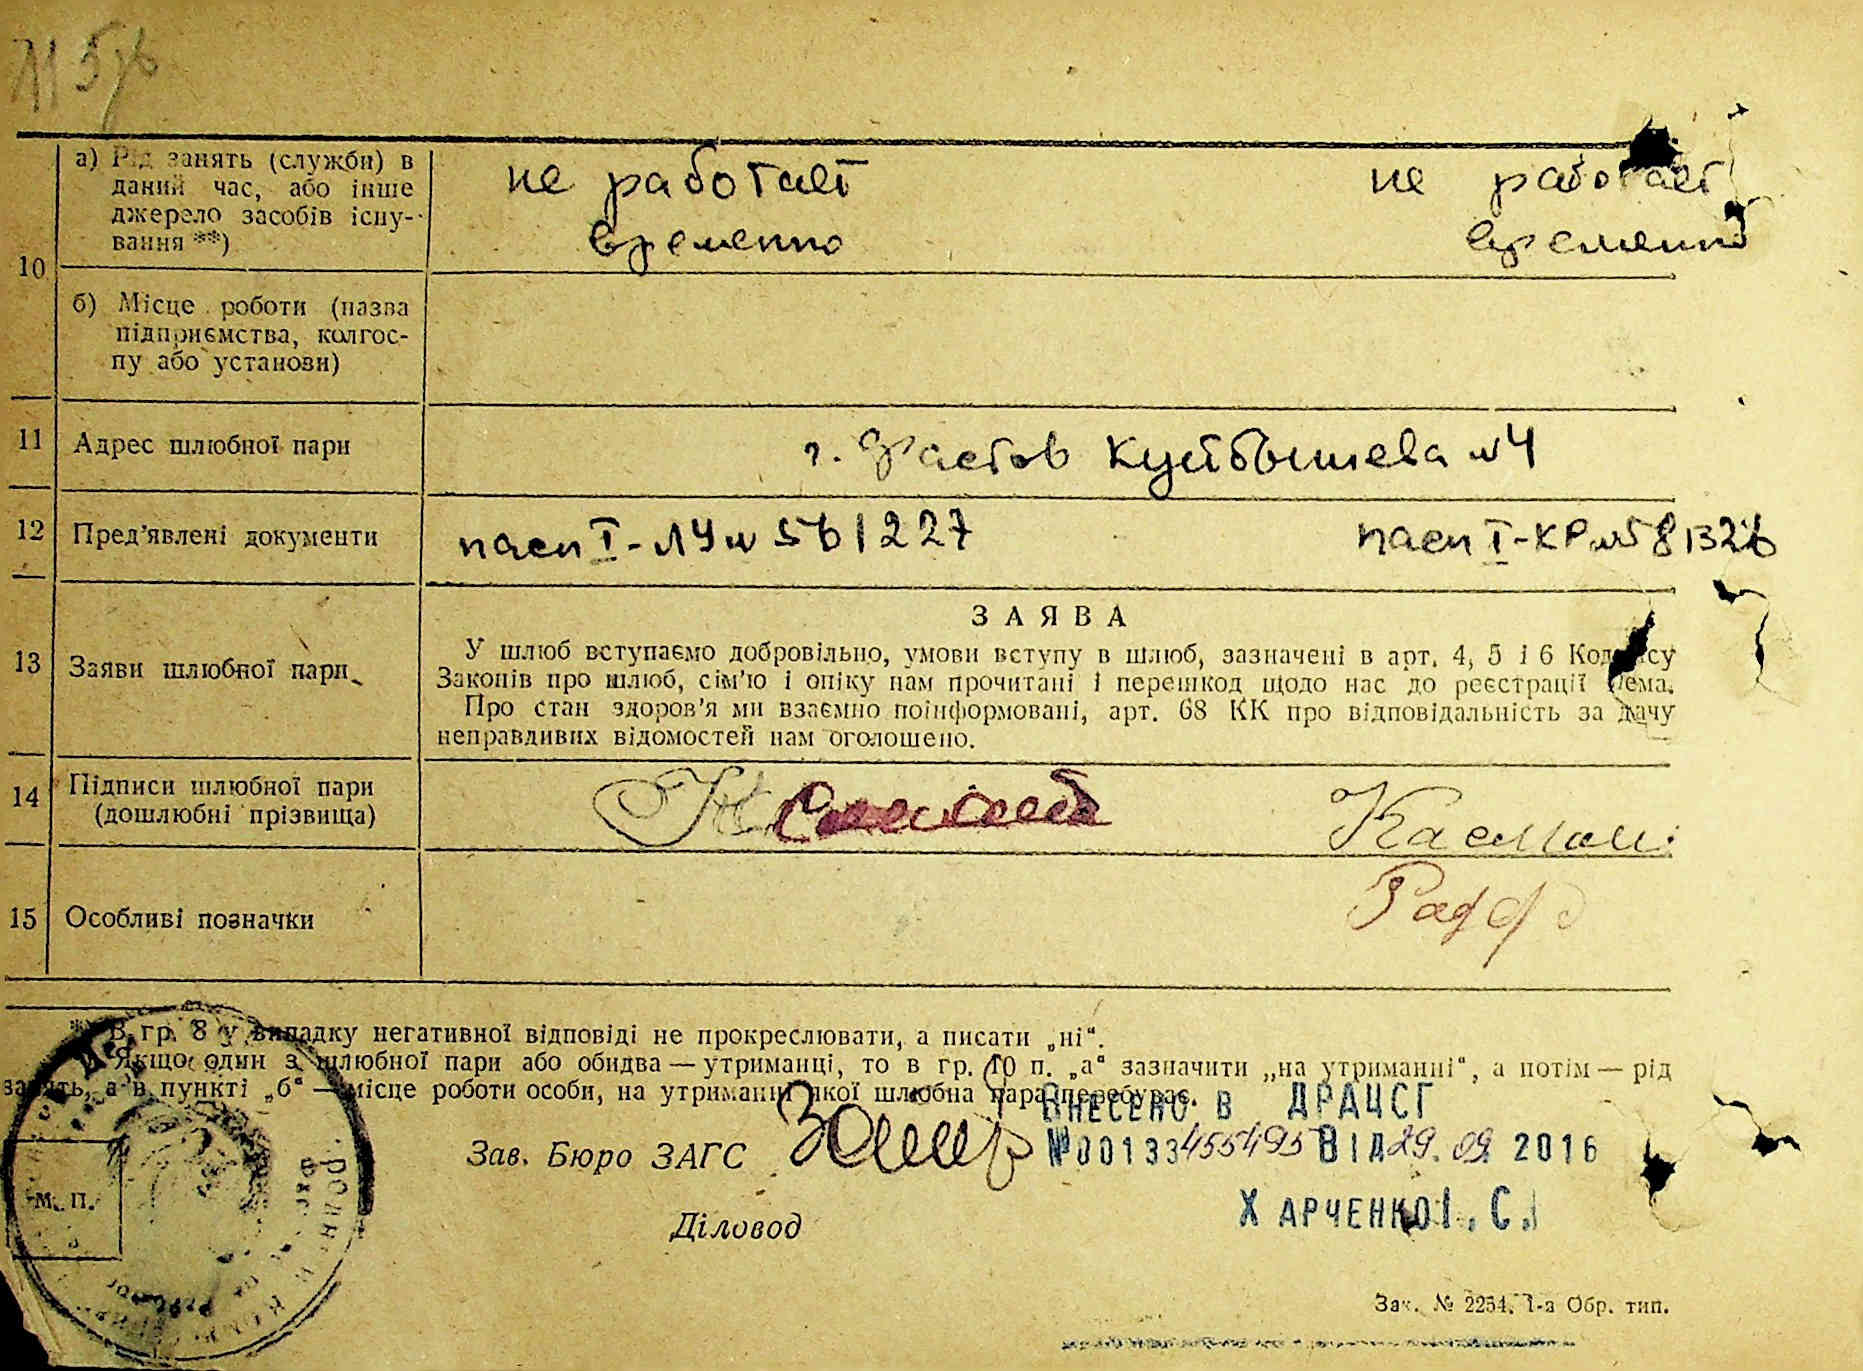 а) Рід занять (служби) в
даний час, або інше
джерело засобів існу-
вання **)
не работает
временно
не работает
временно
10
б) Місце роботи (назва
підприємства, колгос-
пу або установи)
11
Адрес шлюбної пари
г. Фастов Куйбышева №4
12
Пред'явлені документи
пасп I-ЛУ № 561227
пасп I-КР №581326
13
Заяви шлюбної пари
ЗАЯВА
У шлюб вступаємо добровільно, умови вступу в шлюб, зазначені в арт. 4, 5 і 6 Кодексу
Законів про шлюб, сім'ю і опіку нам прочитані і перешкод щодо нас до реєстрації нема.
Про стан здоров'я ми взаємно поінформовані, арт. 68 КК про відповідальність за дачу
неправдивих відомостей нам оголошено.
14
Підписи шлюбної пари
(дошлюбні прізвища)
15
Особливі позначки
*) В гр. 8 у випадку негативної відповіді не прокреслювати, а писати „ні“.
Якщо один з шлюбної пари або обидва — утриманці, то в гр. 10 п. „а“ зазначити „на утриманні“, а потім — рід
занять, а в пункті „б“ — місце роботи особи, на утриманні якої шлюбна пара перебуває.
ВНЕСЕНО В ДРАЦСГ
Зав. Бюро ЗАГС
№00133455495 ВІД 29.09.2016
ХАРЧЕНКО І.С.
Діловод
М. П.
Зак. № 2254. 1-а Обр. тип.